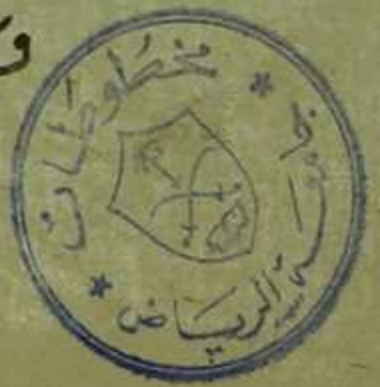 و
مخطوطات
جامعة الرياض